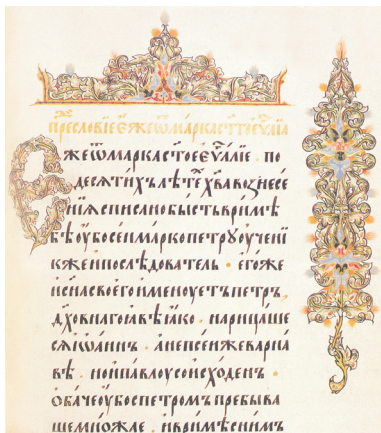 прⷣесловїе є҆́же ѿ ма́рка ст҃го є҆ѵⷢ҇лїа
Єже ѿ марка ст҃ое єѵⷢ҇лїе · по
десѧтихъ лѣтѣ хв҃а вознесе
нїѧ списано бысть в римѣ
бѣ оубо сеи марко петрꙋ оучени
къ же и послѣдователь · егоже
и сн҃а своего именоуетъ петръ,
дх҃овнаго ꙗвѣ ꙗко · нарицаше
сѧ иѡаннъ · анепсеи же варна
вѣ · но и павлоу соисходен ·
обаче оубо с петромъ пребыва
ше множае · и в римѣ с нимъ